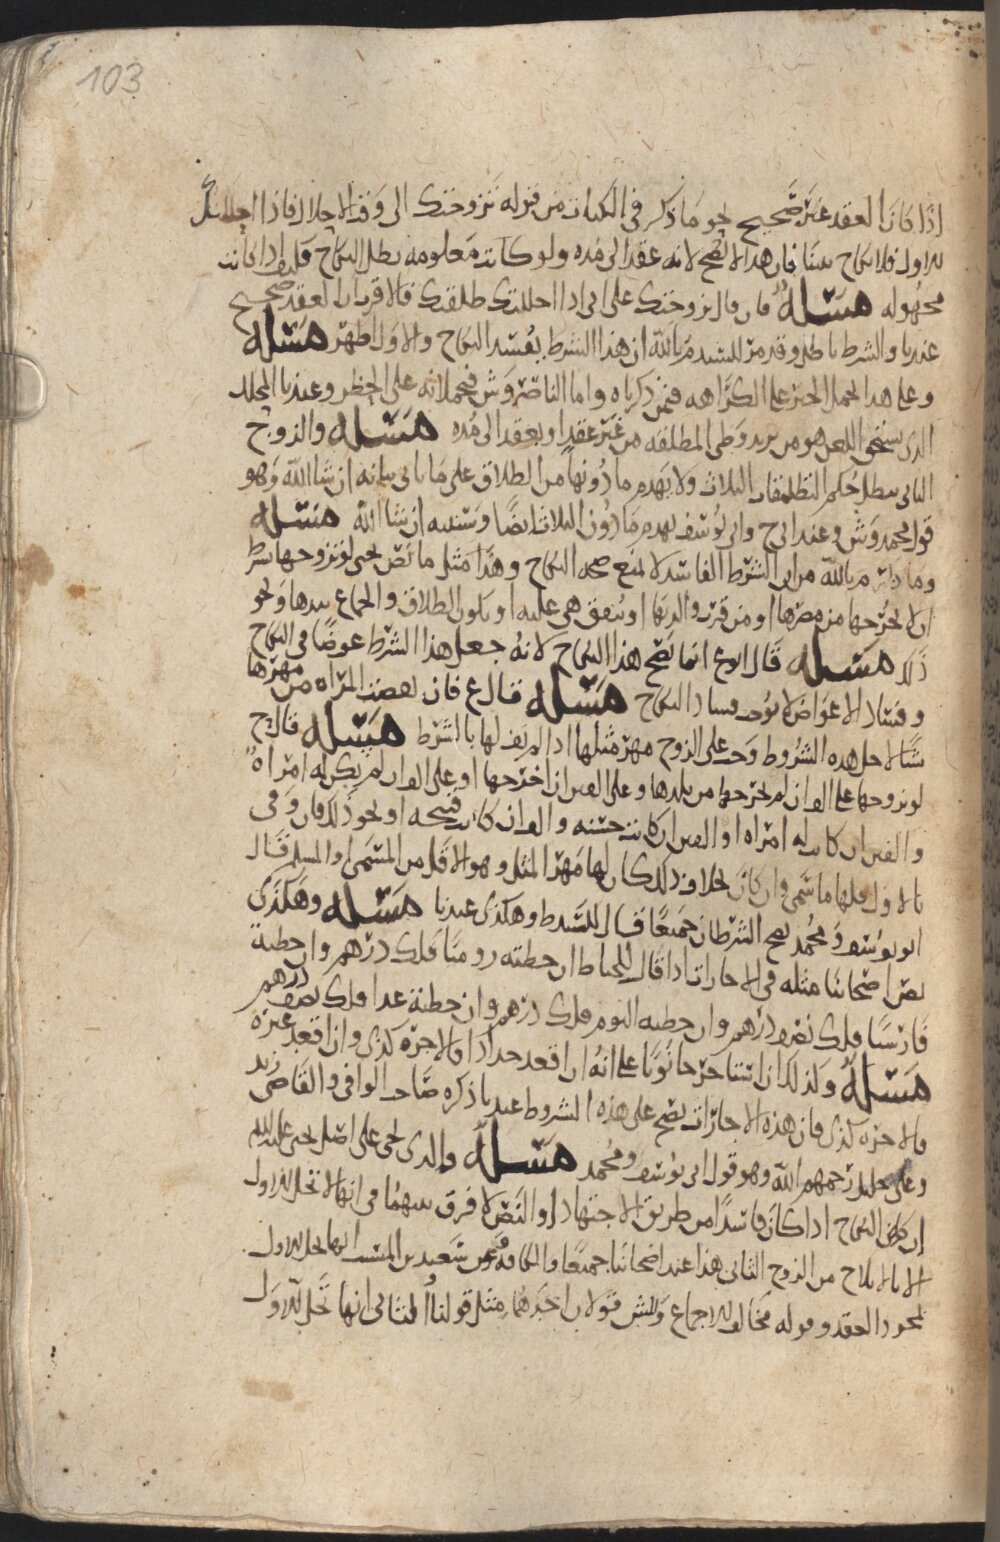 103
اذا كان العقد غير صحيح نحو ما ذكر في الكتاب من قوله تزوجتك الى وقت الاحلال فاذا احللتك
للاول فلا نكاح بيننا فان هذا لا يصح لانه عقد الى مده ولو كانت معلومه بطل النكاح فكيف اذا كانت
مجهوله مسئله فان قال تزوجتك على اني اذا احللتك طلقتك فالاقرب ان العقد صحيح
عندنا والشرط باطل وقد مر للسيد م بالله ان هذا الشرط يفسد النكاح والاول اظهر مسئله
وعلى هذا يحمل الخبر على الكراهه فيمن ذكرناه واما الناصر وش فيحملانه على الحظر وعندنا المحلل
الذي يستحق اللعن هو من يريد وطي المطلقه من غير عقد او بعقد الى مده مسئله والزوج
الثاني يبطل حكم التطليقات الثلاث ولا يهدم ما دونها من الطلاق على ما ياتي بيانه ان شا الله وهو
قول محمد وش وعند ابي ح وابي يوسف يهدم ما دون الثلاث ايضا وسنبينه ان شا الله مسئله
وما ذكره م بالله من ان الشرط الفاسد لا يمنع صحه النكاح وهذا مثل ما نص يحيى لو تزوجها بشرط
ان لا يخرجها من مصرها او من قرب والديها او تنفق هي عليه او يكون الطلاق والجماع بيدها ونحو
ذلك مسئله قال ابو ع انما يصح هذا النكاح لانه جعل هذا الشرط عوضا في النكاح
وفساد الاعواض لا يوجب فساد النكاح مسئله قال ع فان نقصت المراه من مهرها
شيا لاجل هذه الشروط وجب على الزوج مهر مثلها اذا لم يف لها بالشرط مسئله قال ح
لو تزوجها على الف ان لم يخرجها من بلدها وعلى الفين ان اخرجها او على الف ان لم يكن له امراه
والفين ان كانت له امراه او الفين ان كانت حسنه والف ان كانت قبيحه او نحو ذلك فان وفى
بالاول فلها ما سمى وان كان بخلاف ذلك كان لها مهر المثل وهو الاقل من المسمى او المثل قال
ابو يوسف ومحمد يصح الشرطان جميعا قال السيد ط وهكذى عندنا مسئله وهكذى
نص اصحابنا مثله في الاجارات اذا قال للخياط ان خطته روميا فلك درهم وان خطته
فارسيا فلك نصف درهم وان خطته اليوم فلك درهم وان خطته غدا فلك نصف درهم
مسئله وكذلك اذا استاجر حانوتا على انه ان اقعد حدادا فالاجره كذى وان اقعد غيره
فالاجره كذى فان هذه الاجارات تصح على هذه الشروط عندنا ذكره صاحب الوافي والقاضي زيد
وعلي خليل رحمهم الله وهو قول ابي يوسف ومحمد مسئله والذي يجي على اصل يحيى عليه السلام
ان كان النكاح اذا كان فاسدا من طريق الاجتهاد او النص لا فرق بينهما في انها لا تحل للاول
الا بالايلاج من الزوج الثاني هذا عند اصحابنا جميعا والكافه وعن سعيد بن المسيب انها تحل للاول
بمجرد العقد وقوله مخالف للاجماع وللش قولان احدهما مثل قولنا والثاني انها تحل للاول